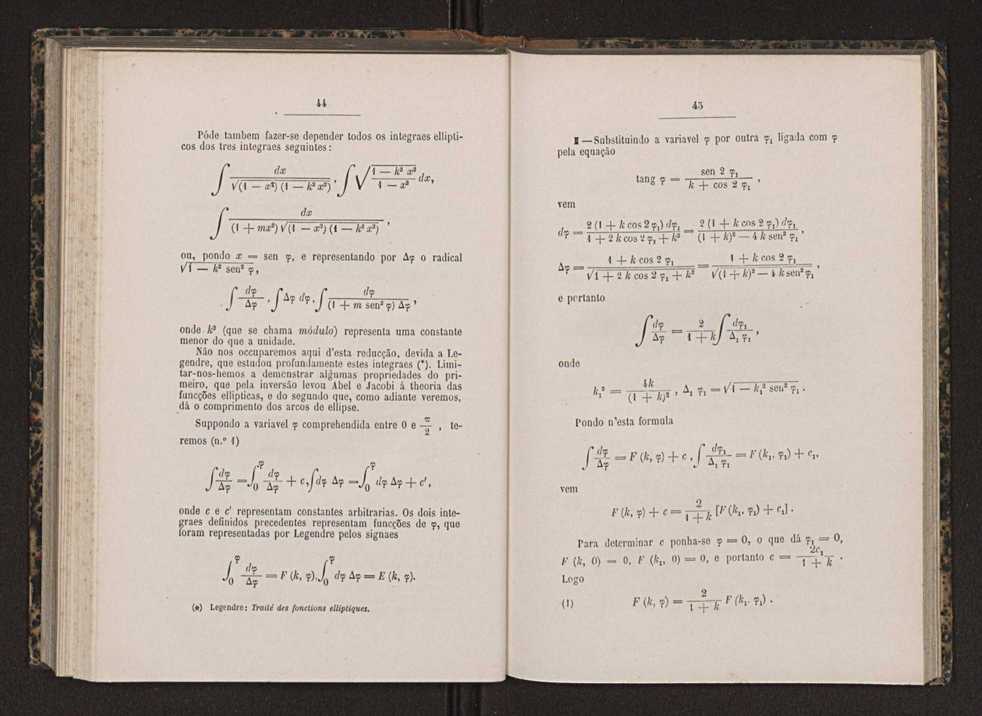 44
Póde tambem fazer-se depender todos os integraes ellipti-
cos dos tres integraes seguintes:
∫ dx / √(1 — x²) (1 — k² x²) , ∫ √(1 — k² x² / 1 — x²) dx,
∫ dx / (1 + mx²) √(1 — x²) (1 — k² x²) ,
ou, pondo x = sen φ, e representando por Δφ o radical
√1 — k² sen² φ,
∫ dφ / Δφ , ∫ Δφ dφ, ∫ dφ / (1 + m sen² φ) Δφ ,
onde k² (que se chama módulo) representa uma constante
menor do que a unidade.
Não nos occuparemos aqui d'esta reducção, devida a Le-
gendre, que estudou profundamente estes integraes (*). Limi-
tar-nos-hemos a demonstrar algumas propriedades do pri-
meiro, que pela inversão levou Abel e Jacobi á theoria das
funcções ellipticas, e do segundo que, como adiante veremos,
dá o comprimento dos arcos de ellipse.
Suppondo a variavel φ comprehendida entre 0 e π/2 , te-
remos (n.º 1)
∫ dφ/Δφ = ∫₀^φ dφ/Δφ + c, ∫ dφ Δφ = ∫₀^φ dφ Δφ + c',
onde c e c' representam constantes arbitrarias. Os dois inte-
graes definidos precedentes representam funcções de φ, que
foram representadas por Legendre pelos signaes
∫₀^φ dφ/Δφ = F (k, φ), ∫₀^φ dφ Δφ = E (k, φ).
(*) Legendre: Traité des fonctions elliptiques.
45
II — Substituindo a variavel φ por outra φ₁ ligada com φ
pela equação
tang φ = sen 2 φ₁ / k + cos 2 φ₁ ,
vem
dφ = 2 (1 + k cos 2 φ₁) dφ₁ / 1 + 2 k cos 2 φ₁ + k² = 2 (1 + k cos 2 φ₁) dφ₁ / (1 + k)² — 4 k sen² φ₁ ,
Δφ = 1 + k cos 2 φ₁ / √1 + 2 k cos 2 φ₁ + k² = 1 + k cos 2 φ₁ / √(1 + k)² — 4 k sen² φ₁ ,
e portanto
∫ dφ/Δφ = 2 / 1 + k ∫ dφ₁ / Δ₁ φ₁ ,
onde
k₁² = 4k / (1 + k)² , Δ₁ φ₁ = √1 — k₁² sen² φ₁ .
Pondo n'esta formula
∫ dφ/Δφ = F (k, φ) + c , ∫ dφ₁ / Δ₁ φ₁ = F (k₁, φ₁) + c₁,
vem
F (k, φ) + c = 2 / 1 + k [F (k₁, φ₁) + c₁] .
Para determinar c ponha-se φ = 0, o que dá φ₁ = 0,
F (k, 0) = 0, F (k₁, 0) = 0, e portanto c = 2c₁ / 1 + k .
Logo
(1) F (k, φ) = 2 / 1 + k F (k₁, φ₁) .